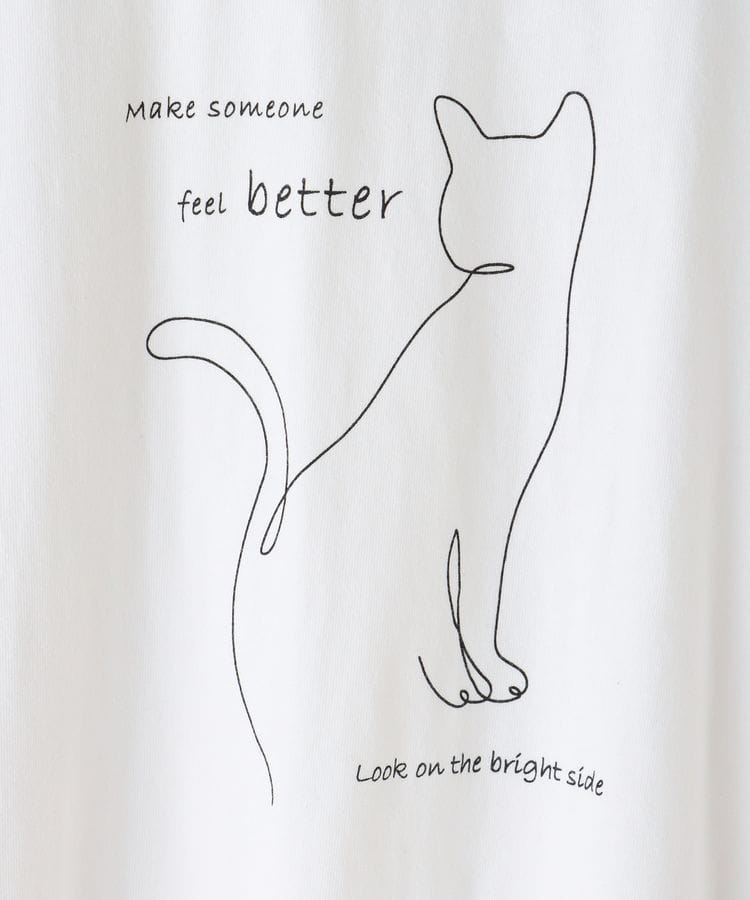 Make someone
feel better
Look on the bright side